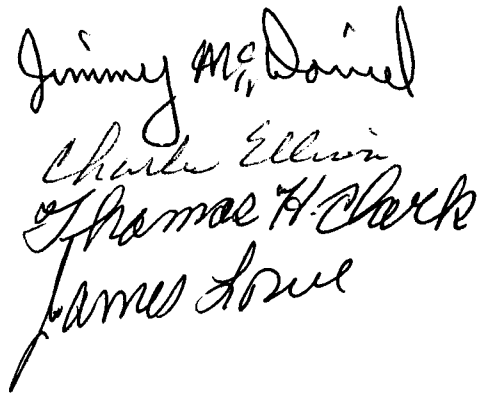 Jimmy McDaniel
Charlie Ellison
Thomas H. Clark
James